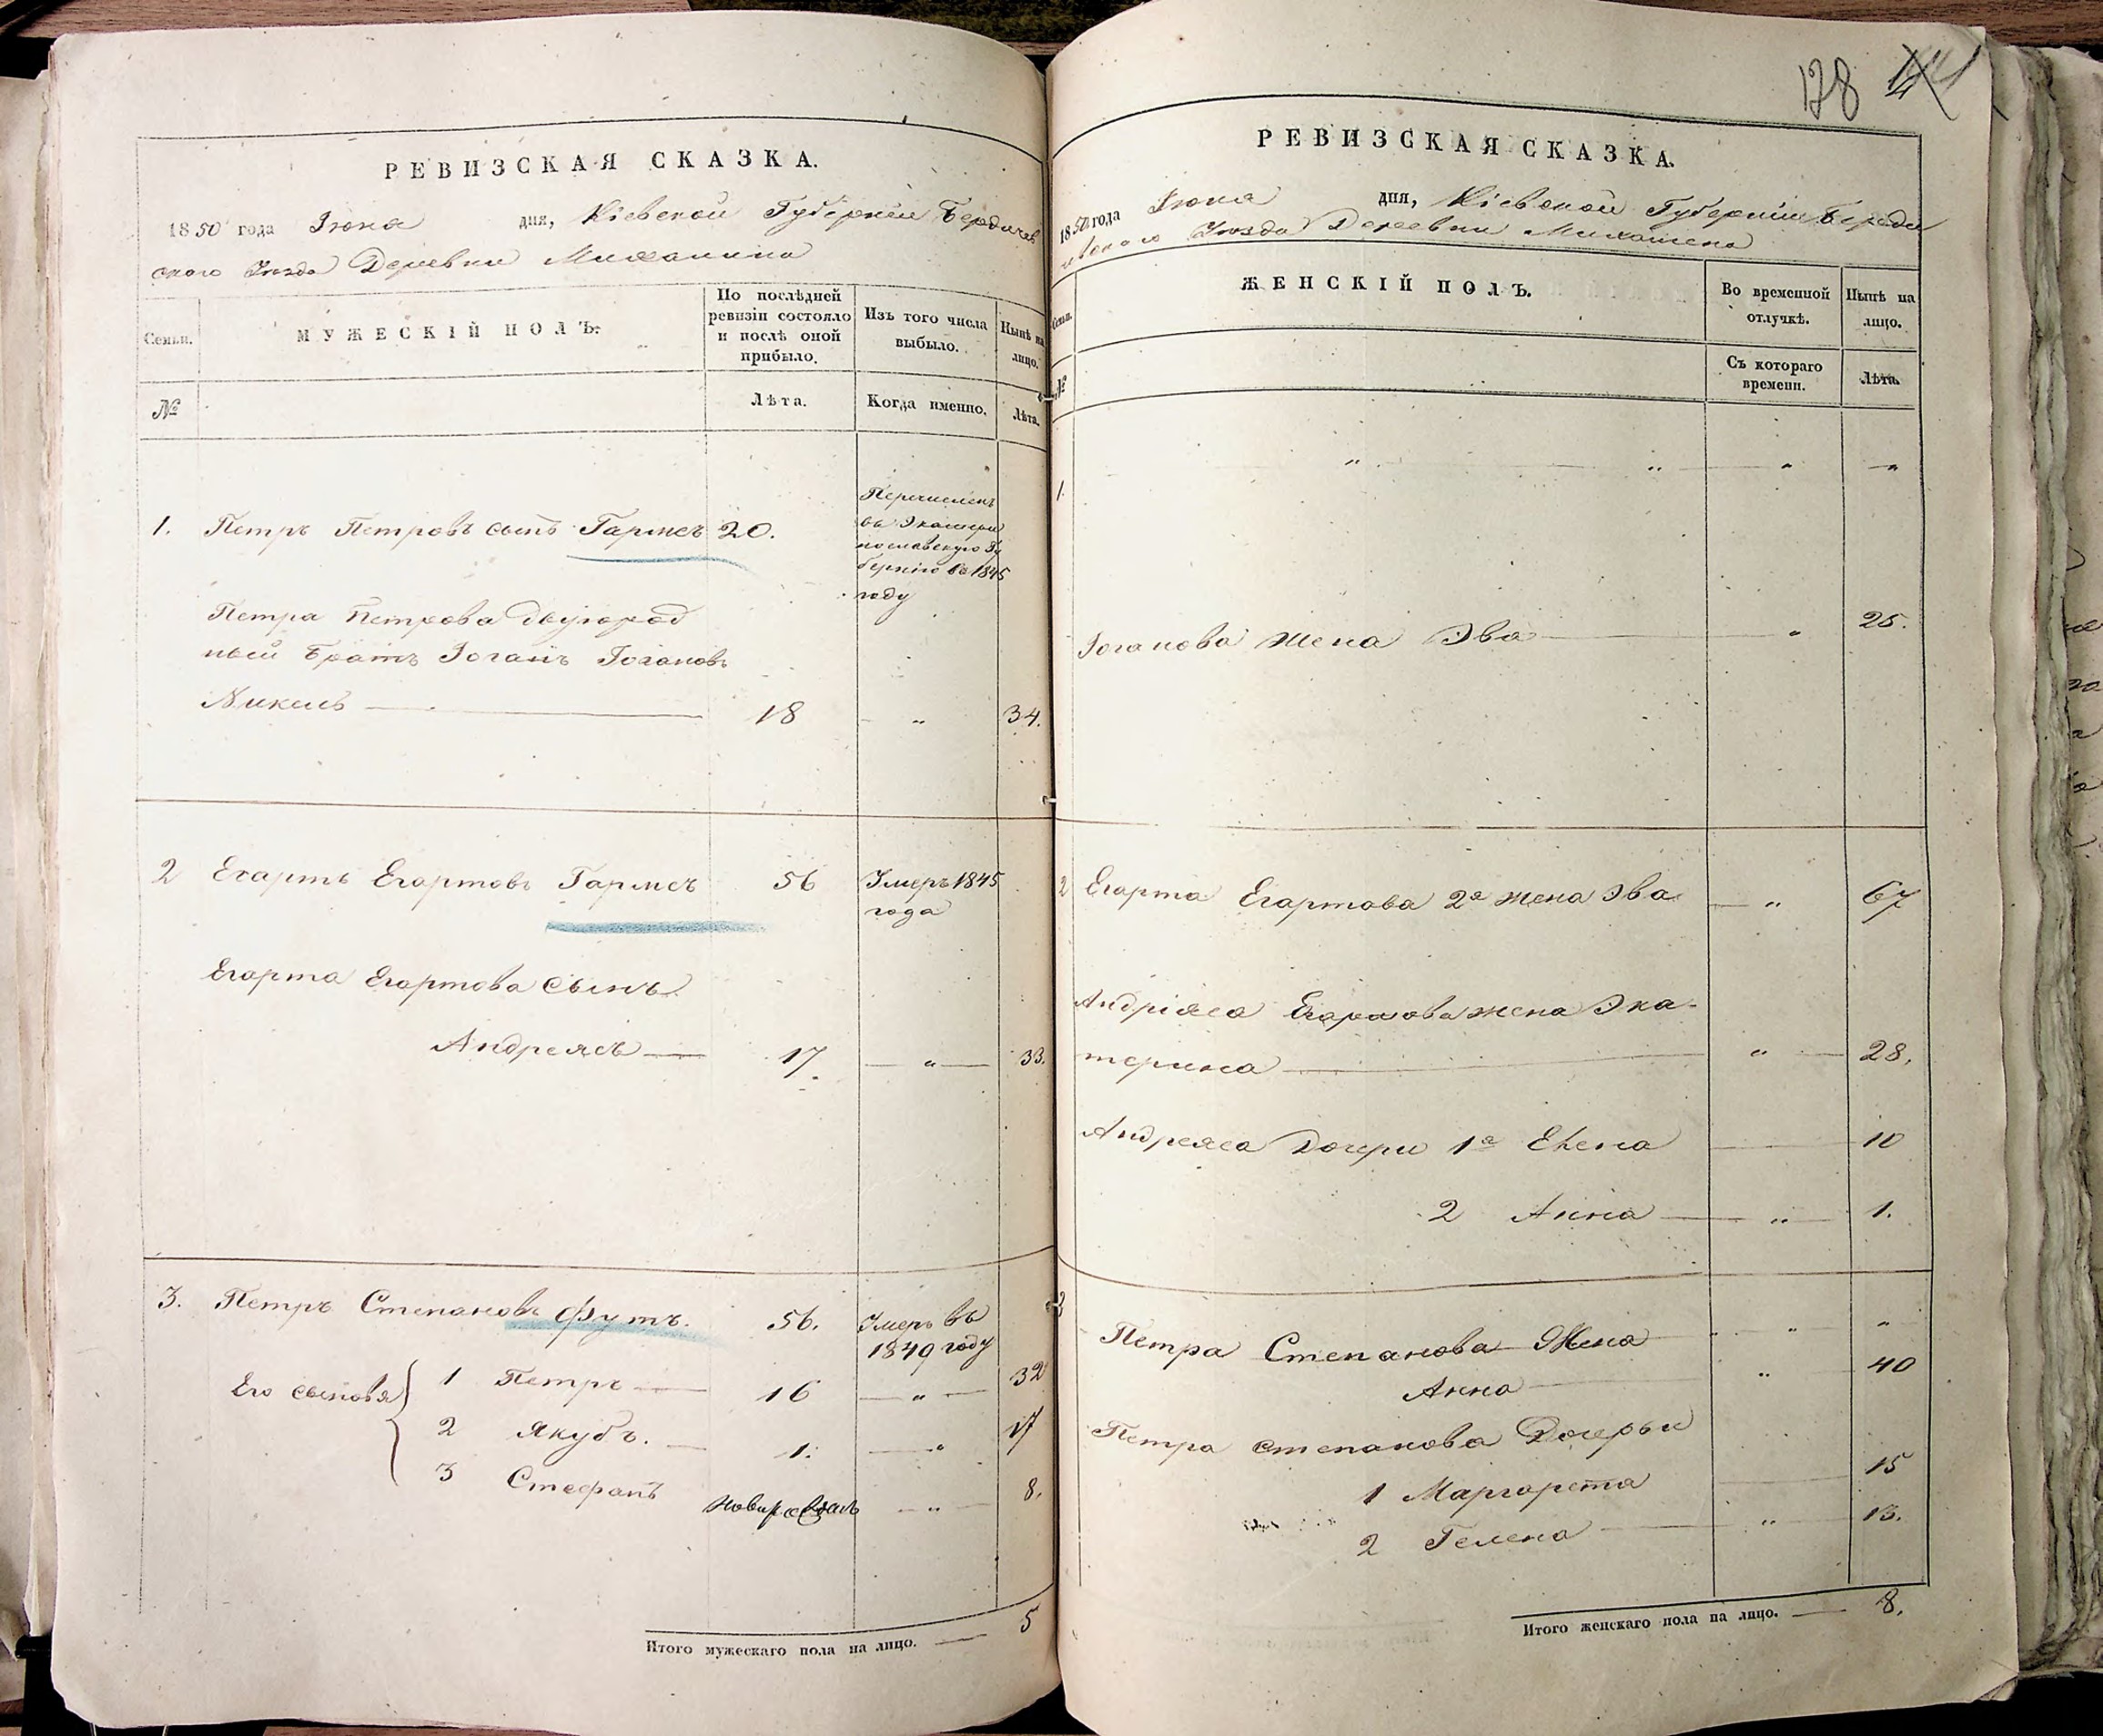 РЕВИЗСКАЯ СКАЗКА.
1850 года Іюня дня, Кіевской Губерніи Бердичев
ского Уезда Деревни Михалина
Семьи.
МУЖЕСКІЙ ПОЛЪ.
По послѣдней ревизіи состояло и послѣ оной прибыло.
Изъ того числа выбыло.
Нынѣ на лицо.
№
Лѣта.
Когда именно.
Лѣта.
1. Петръ Петровъ сынъ Гармсъ 20.
Перечисленъ
въ Екатери
нославскую Гу
бернію въ 1845
году
Петра Петрова двуюрод
ный братъ Іоганъ Іогановъ
Никель 18 " 34.
2 Егартъ Егартовъ Гармсъ 56 Умеръ 1845
года
Егарта Егартова сынъ
Андреясъ 17 " 33.
3. Петръ Степановъ Футъ. 56. Умеръ въ
1849 году
Его сыновья 1 Петръ 16 " 32
2 Якубъ. 1. " 17
3 Стефанъ 8.
Итого мужескаго пола на лицо. 5
128
РЕВИЗСКАЯ СКАЗКА.
1850 года Іюня дня, Кіевской Губерніи Берди
чевского Уезда Деревни Михалина
Семьи.
ЖЕНСКІЙ ПОЛЪ.
Во временной отлучкѣ.
Нынѣ на лицо.
№
Съ котораго времени.
Лѣта.
1. " " " "
Іоганова жена Эва " 25.
2 Егарта Егартова 2я жена Эва " 67
Андріяса Егартова жена Ека-
терина " 28,
Андреяса Дочери 1я Елена 10
2 Анна " 1.
3 Петра Степанова Жена " " "
Анна " 40
Петра Степанова Дочери
1 Маргарета 15
2 Гелена " 13.
Итого женскаго пола на лицо. 8.